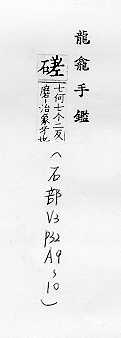 龍龕手鑑
磋
七何七个二反
磨治象牙也
(石部V3P32A9~10)